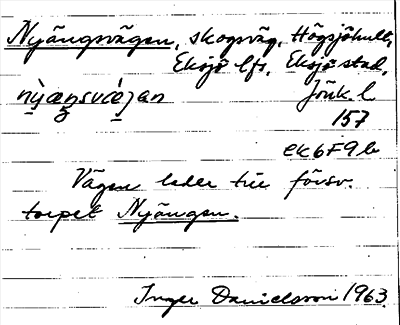 Nyängsvägen, skogsväg, Högsjöhult,
Eksjö lfs, Eksjö stad,
Jönk. l.
157
ek6F9b
Vägen leder till försv.
torpet Nyängen.
Inger Danielsson 1963.